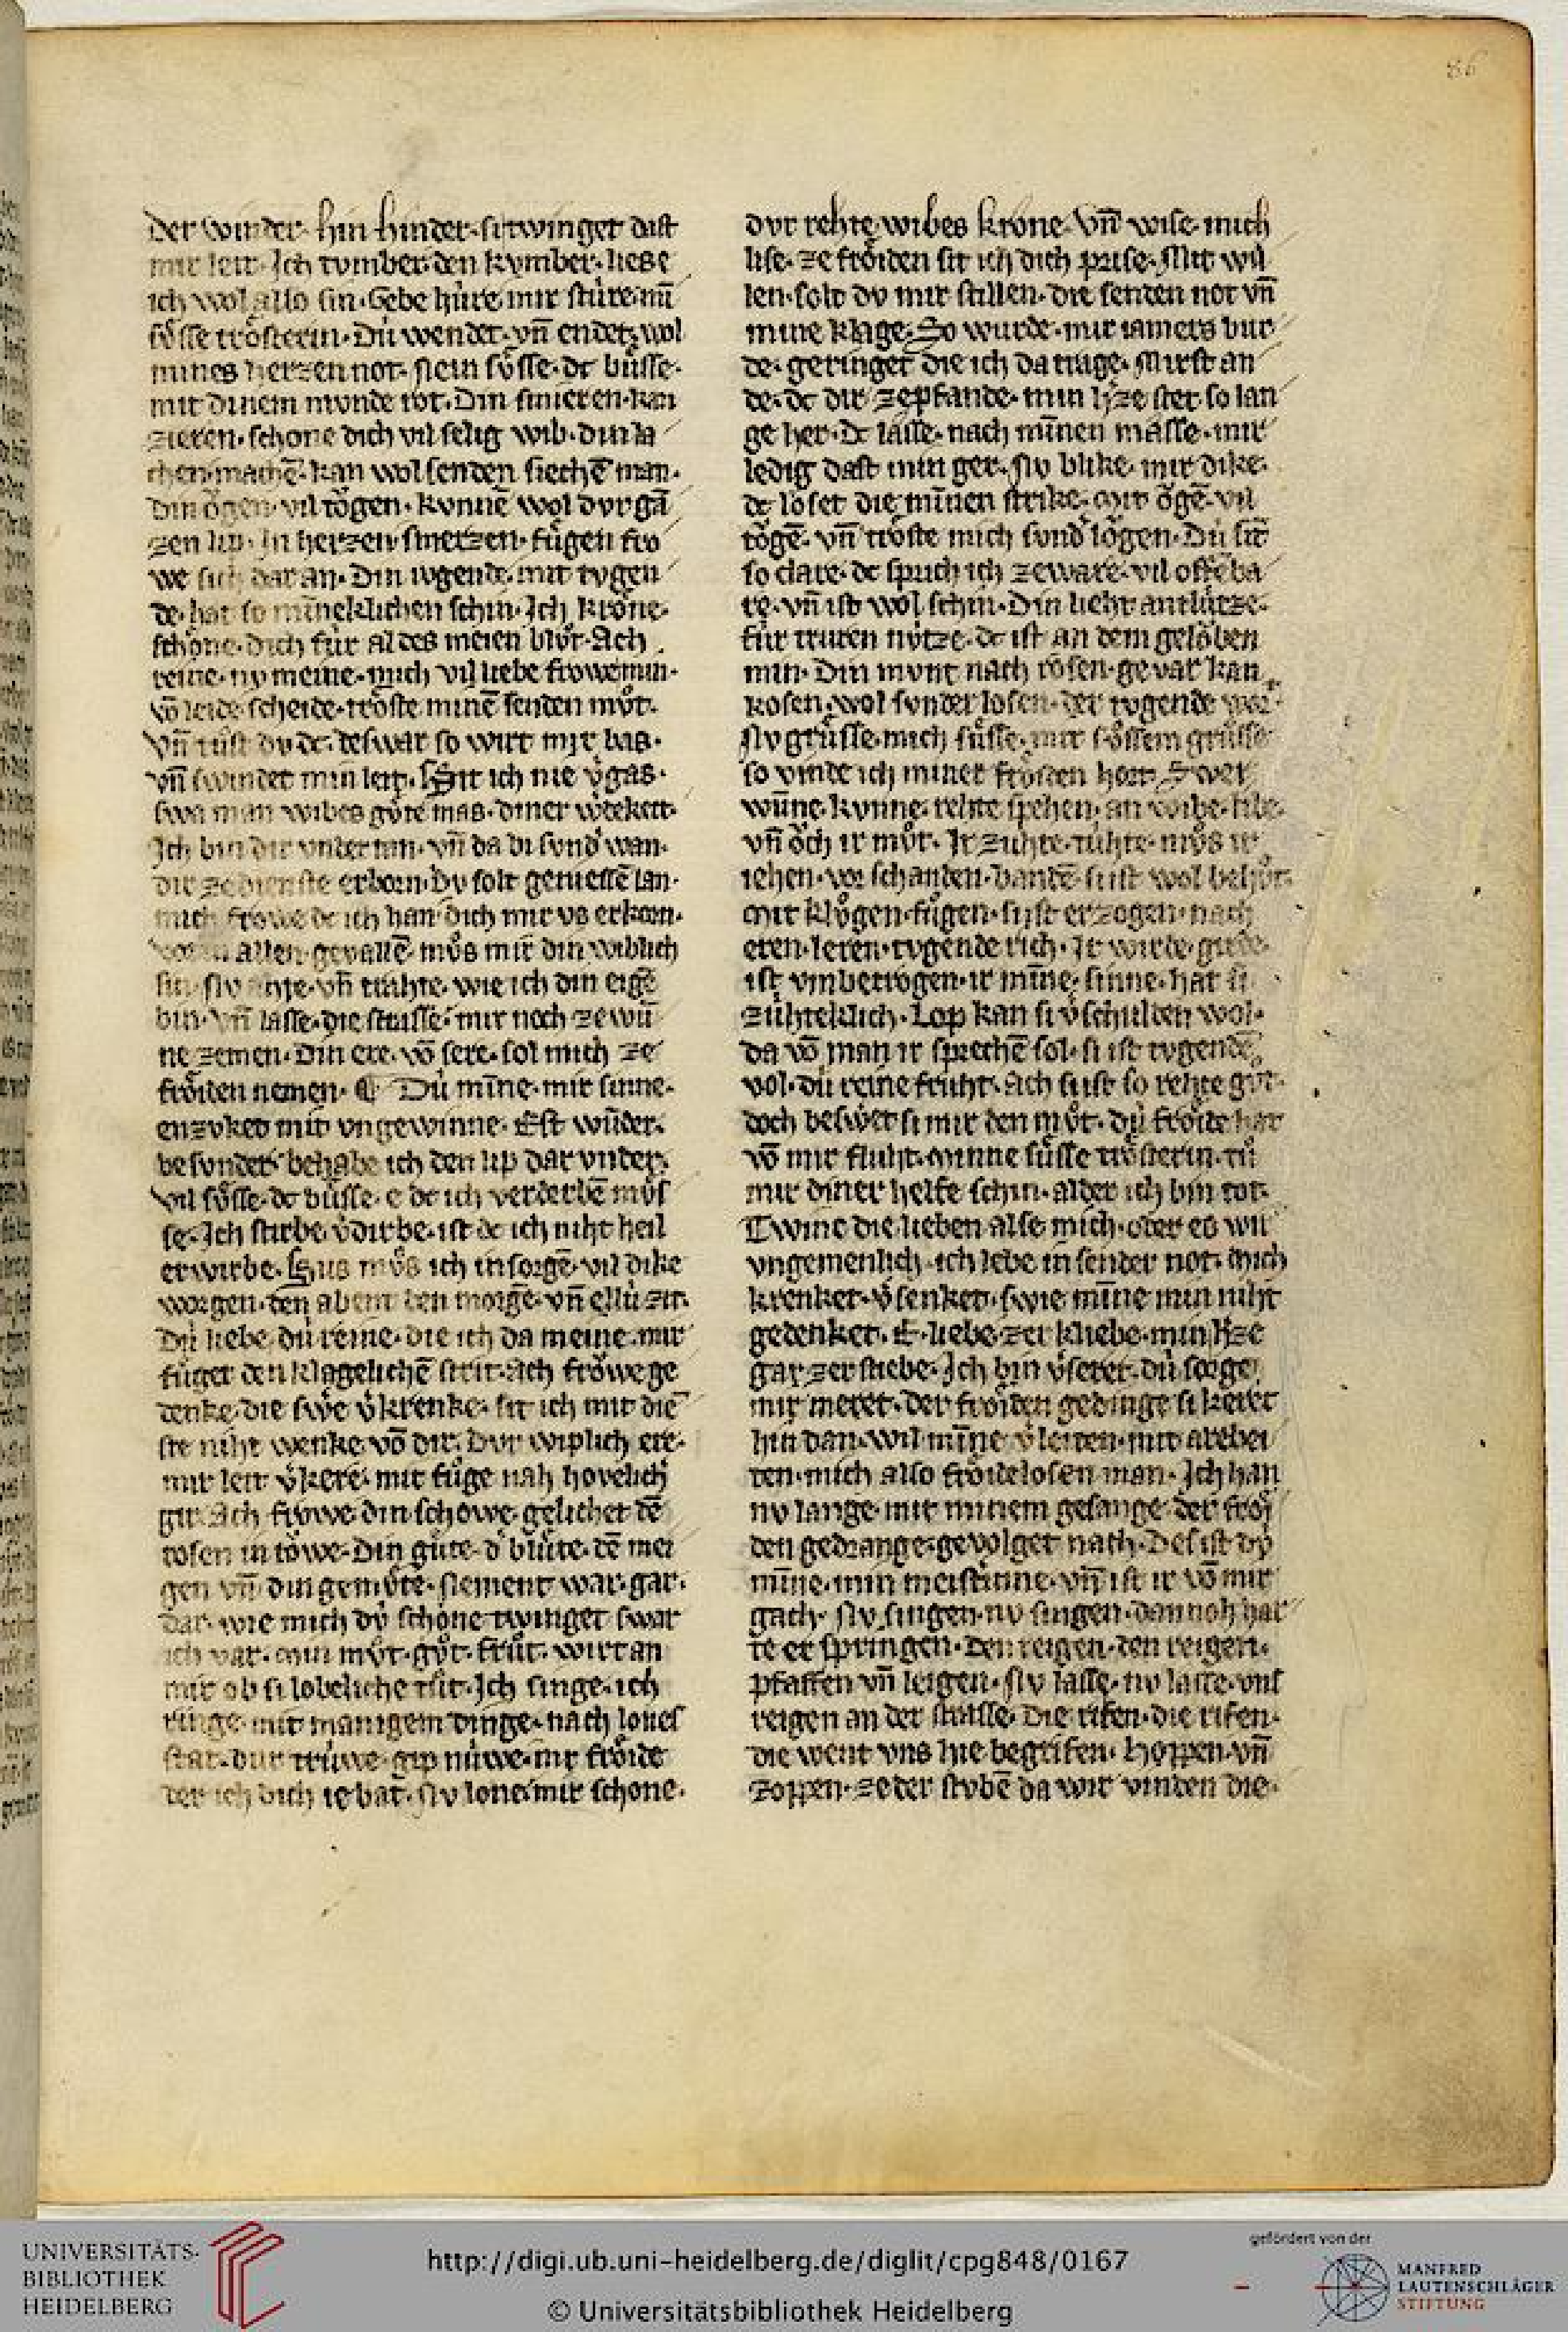 86
der winder· hin hinder· si twinget dast
mir leit· Ich tvmber· den kvmber· liese
ich wol also sin· Gebe hùre· mir stùre· mī
sv̊sse trösterin· Dù wendet· vn̄ endet· wol
mines herzen not· Nein sv̊sse· dc bùsse·
mit dinem mvnde rot· Din smieren· kan
zieren· schone dich vil selig wib· din la
chen· machē· kan wol senden siechē man·
din ögen· vil tögen· kvnnē wol dvr gā
zen lip· In herzen· smerzen· fůgen fro
we sich dar an· Din ivgende· mit tvgen
de· hat so minneklichen schin· Ich kröne·
schöne· dich fùr al des meien blv̊t· Ach
reine· nv meine· mich vil liebe frowe min·
vō leide scheide· tröste minē senden mv̊t·
Vn̄ tůst dv dc· deswar so wirt mir bas·
vn̄ swindet min leit· Sit ich nie v̓gas·
swa man wibes gv̊te mas· diner wdekeit·
Ich bin dir vndertan· vn̄ da bi svnd̓ wan·
dir ze dienste erborn· dv solt geniessē lan·
mich frowe dc ich han· dich mir vs erkorn·
vor in allen· gevallē· mv̊s mir din wiblich
sin· Nv ahte· vn̄ trahte· wie ich din eigē
bin· Vn̄ lasse· die strasse· mir noch ze wū
ne zemen· Din ere· vō sere· sol mich ze
fröiden nemen· ¶ Dù mīne· mir sinne·
enzvket mit vngewinne· Est wn̄der·
besvnder· behabe ich den lip dar vnder·
Vil sv̊sse· dc bùsse· e dc ich verderbē mv̊s
se· Ich stirbe v̓dirbe· ist dc ich niht heil
erwirbe· Sus mv̊s ich in sorgē· vil dike
worgen· den abent den morgē· vn̄ ellù zit·
Dù liebe dù reine· die ich da meine· mir
fůget den klagelichē strit· Ach fröwe ge
denke· die swe v̓krenke· sit ich mit die
ste niht wenke· vō dir· Dvr wiplich ere·
mir leit v̓kere· mit fůge nah hovelich
gir· Ach frowe din schowe· gelichet dē
rosen in töwe· Din gùte· d̓ blùte· dē mei
gen vn̄ din gemv̊te· Niement war· gar·
dar· wie mich dv̓ schone twinget swar
ich var· Min mv̊t· gv̊t· frůt· wirt an
mir ob si lobeliche tůt· Ich singe· ich
ringe· mit manigem dinge· nach lones
stat· dur trùwe· gip nùwe· mir fröide
der ich dich ie bat· Nv lone· mir schone·
dvr rehte wibes krone· Vn̄ wise mich
lise· ze fröiden sit ich dich prise· Mit wil
len· solt dv mir stillen· die senden not vn̄
mine klage· So wurde· mir iamers bur
de· geringet die ich da trage· Mirst an
de· dc dir ze pfande· min h̓ze stet so lan
ge her· Dc lasse· nach mīnen masse· mir
ledig dast min ger· Nv blike· mir dike·
dc löset die mīnen strike· Mit ögē· vil
tögē· vn̄ tröste mich svnd̓ lögen· Dù sit
so clare· dc sprich ich zeware· vil offēba
re· vn̄ ist wol schin· Din lieht antlùtze·
fùr truren nùtze· dc ist an dem gelöben
min· Din mvnt nach rosen· gevar kan
kosen· wol svnder losen· der tvgende wort·
Nv grùsse· mich sùsse· mit sv̊ssem grùsse
so vinde ich miner fröiden hort· Swer
wn̄ne· kvnne· rehte spehen· an wibe· libe·
vn̄ öch ir mv̊t· Ir zuhte· tùhte· mv̊s ir
iehen· vor schanden· bandē· sust wol behv̊t·
Mit klv̊gen· fùgen· sust erzogen· nach
eren· leren· tvgende rich· Ir wirde· girde·
ist vnbetrogen· ir mīne· sinne· hat si
zùhteklich· Lop kan si v̓schulden wol·
da vō man ir sprechē sol· si ist tvgendē
vol· dù reine fruht· Ach sust so rehte gv̊t·
doch beswēt si mir den mv̊t· dù fröide hat
vō mir fluht· Minne sùsse trösterin· tů
mir diner helfe schin· alder ich bin tot·
Twinc die lieben alse mich· oder es wir
vngemenlich· ich lebe in sender not· Mich
krenket· v̓senket· swie mīne min niht
gedenket· E· liebe· zerkliebe· min h̓ze
gar zerstiebe· Ich bin v̓seret· dù sorge
mir meret· der fröiden gedinge si keret
hin dan· wil mīne v̓leiten· mit arebei
ten· mich also fröidelosen man· Ich han
nv lange· mit minem gesange· der fröi
den gedrange· gevolget nach· Des ist dv̓
mīne· min meistrinne· vn̄ ist ir vō mir
gach· Nv singen· nv singen· dannoh har
te er springen· Den reigen· den reigen·
pfaffen vn̄ leigen· Nv lasse· nv lasse· vns
reigen an der strasse· Die rifen· die rifen·
die went vns hie begrifen· Hoppen· vn̄
zoppen· ze der stvbē da wir vinden die·
UNIVERSITÄTS-
BIBLIOTHEK
HEIDELBERG
http://digi.ub.uni-heidelberg.de/diglit/cpg848/0167
© Universitätsbibliothek Heidelberg
gefördert von der
MANFRED
LAUTENSCHLÄGER
STIFTUNG